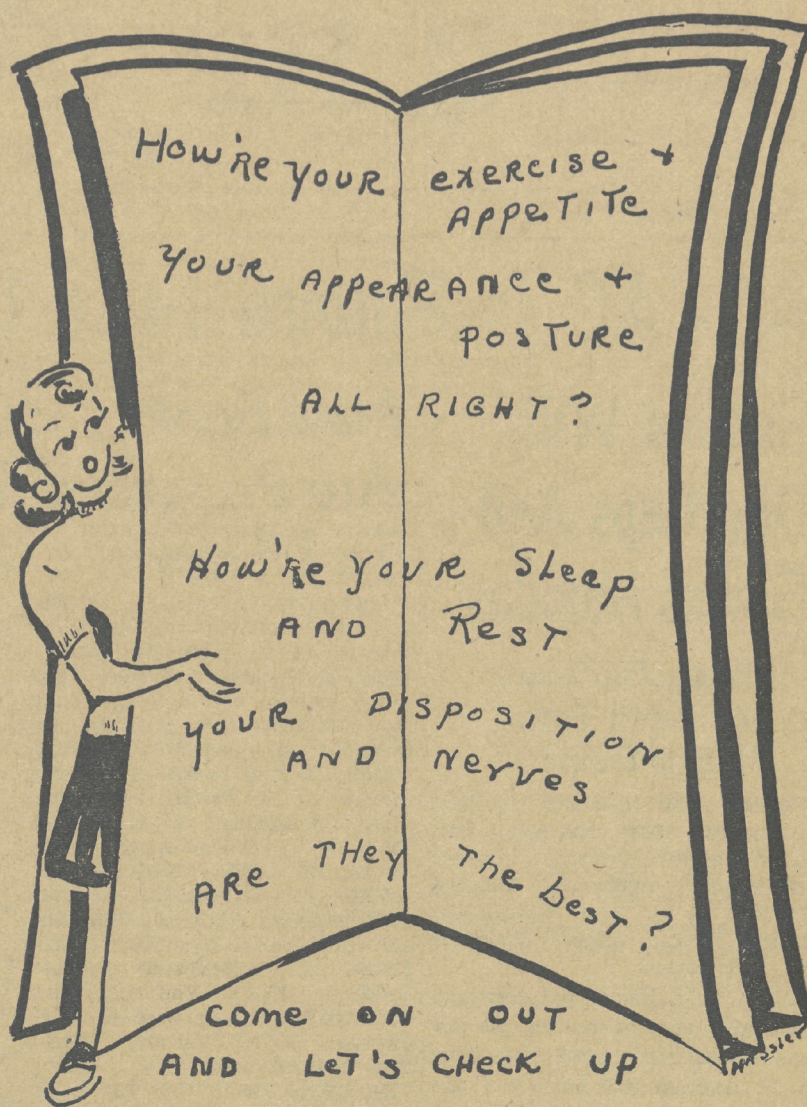 How're YOUR exercise +
APPETITE
YOUR APPeARANce +
POSTURe
ALL RIGHT?
How'Re YOUR SLeep
AND ResT
YOUR DISPOSITION
AND Nerves
ARe THey The besT?
Come ON OUT
AND LeT's CHeCK UP